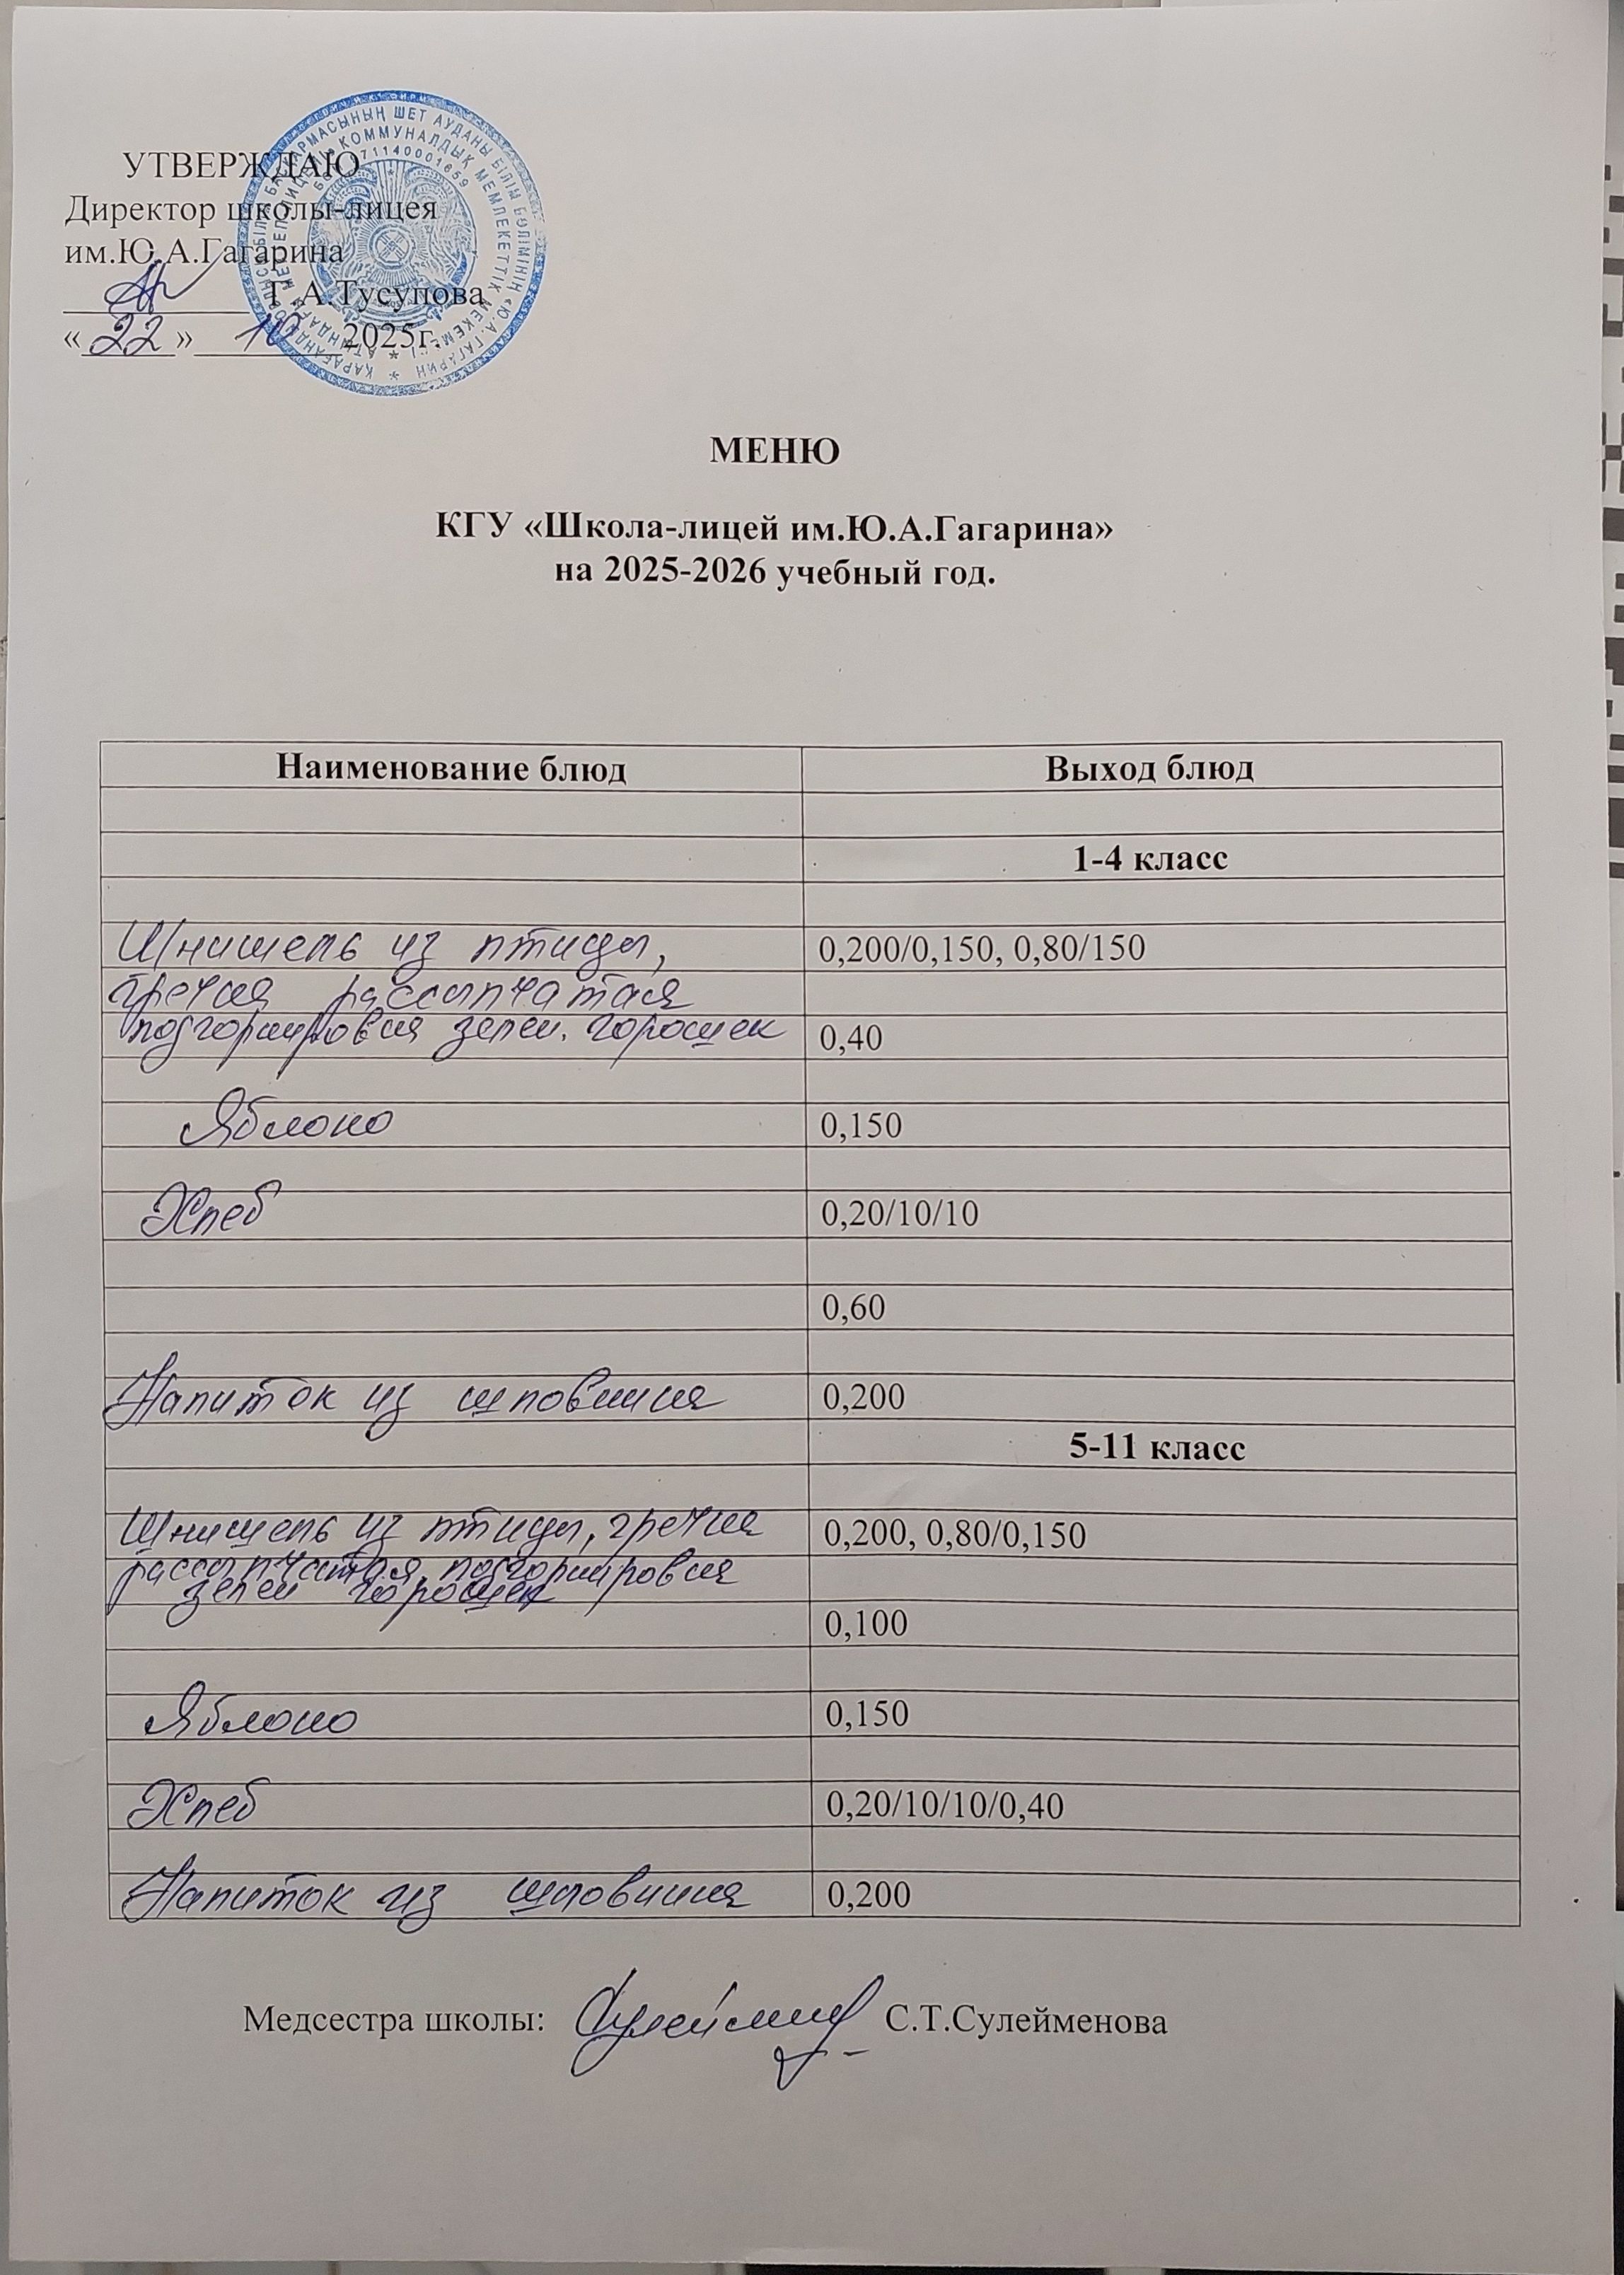 УТВЕРЖДАЮ
Директор школы-лицея
им.Ю.А.Гагарина
Г.А.Тусупова
«22» 10 2025г.
МЕНЮ
КГУ «Школа-лицей им.Ю.А.Гагарина»
на 2025-2026 учебный год.
Наименование блюд Выход блюд
1-4 класс
Шницель из птицы, 0,200/0,150, 0,80/150
гречка рассыпчатая
подгорнировка зелен. горошек 0,40
Яблоко 0,150
Хлеб 0,20/10/10
0,60
Напиток из шповника 0,200
5-11 класс
Шницель из птицы, гречка 0,200, 0,80/0,150
рассыпчатая, подгорнировка
зелен горошек
0,100
Яблоко 0,150
Хлеб 0,20/10/10/0,40
Напиток из шповника 0,200
Медсестра школы: С.Т.Сулейменова